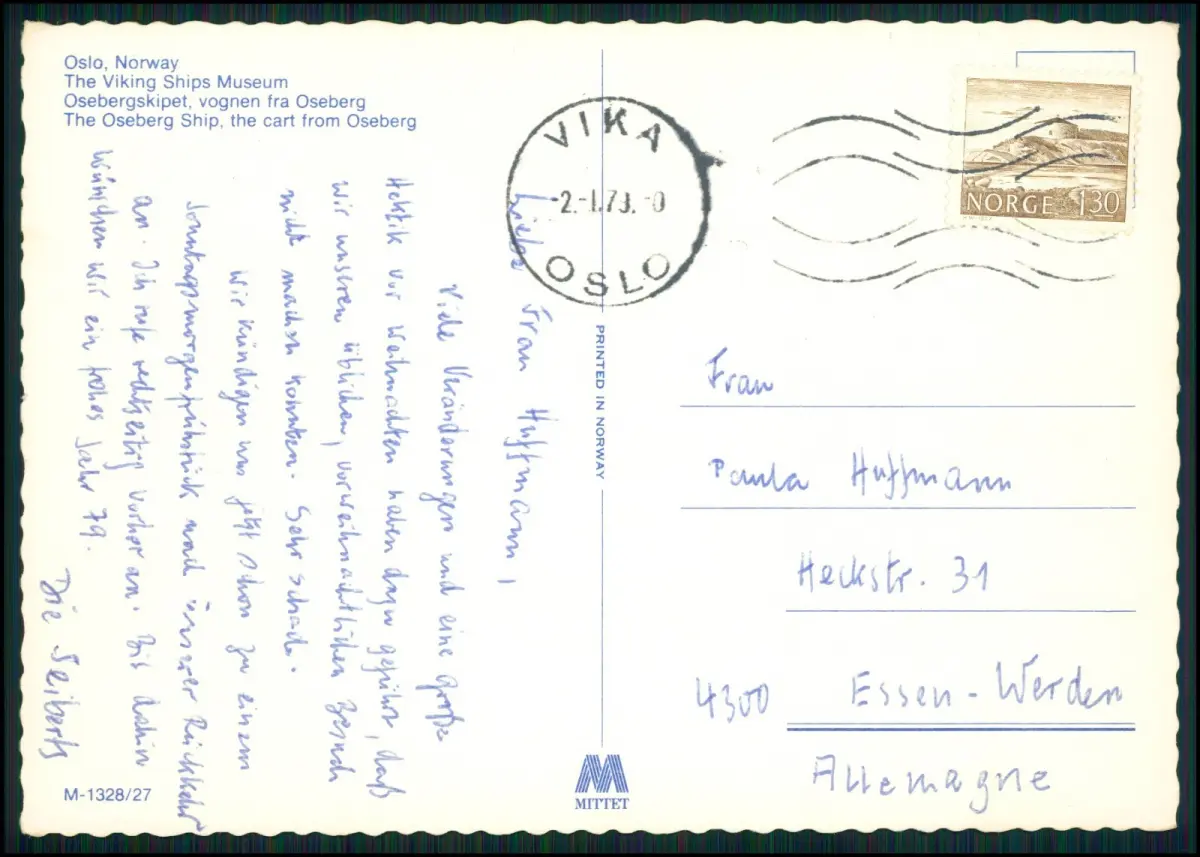 Oslo, Norway
The Viking Ships Museum
Osebergskipet, vognen fra Oseberg
The Oseberg Ship, the cart from Oseberg
Liebe Frau Huffmann,
Viele Veränderungen und eine große
Hektik vor Weihnachten haben dazu geführt, daß
wir unseren üblichen, vorweihnachtlichen Besuch
nicht machen konnten. Sehr schade.
Wir kündigen uns jetzt schon zu einem
Sonntagsmorgenfrühstück nach unserer Rückkehr
an. Ich rufe rechtzeitig vorher an. Bis dahin
wünschen wir ein frohes Jahr 79.
Die Seiberts
M-1328/27
PRINTED IN NORWAY
MITTET
VIKA
-2.-1.79.-0
OSLO
NORGE 130
Frau
Paula Huffmann
Heckstr. 31
4300 Essen-Werden
Allemagne